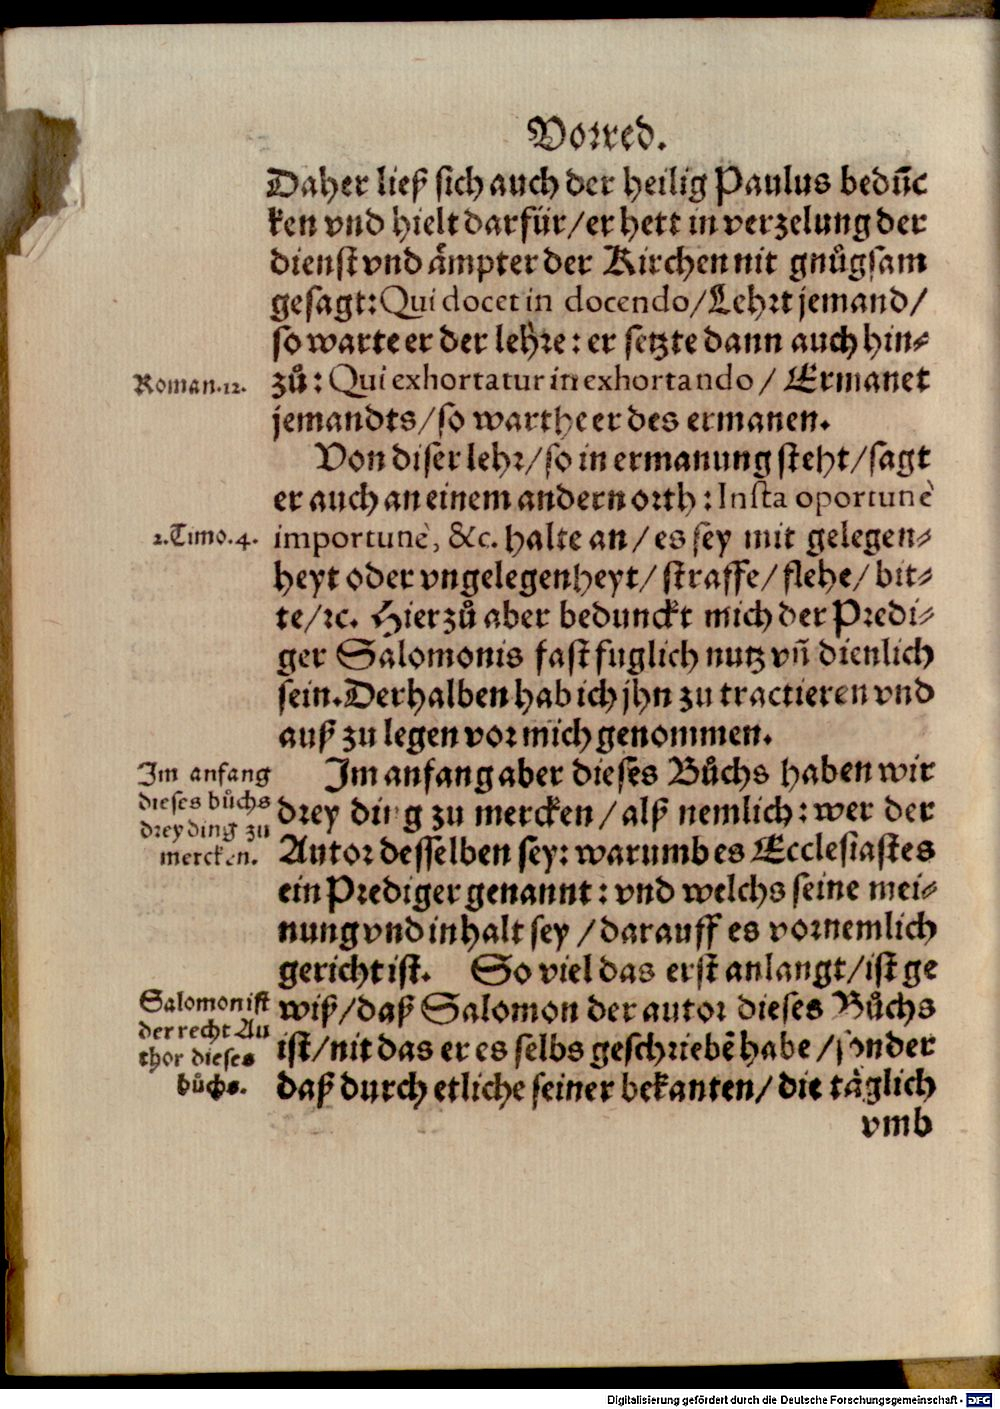 Vorred.
Daher ließ sich auch der heilig Paulus bedun̄c
ken vnd hielt darfür/er hett in verzelung der
dienst vnd aͤmpter der Kirchen nit gnuͦgsam
gesagt: Qui docet in docendo/Lehrt jemand/
so warte er der lehre: er setzte dann auch hin⸗
Roman.12.
zuͦ: Qui exhortatur in exhortando / Ermanet
jemandts/so warthe er des ermanen.
Von diser lehr/so in ermanung steht/sagt
er auch an einem andern orth: Insta oportunè
2.Timo.4.
importunè, &c. halte an/es sey mit gelegen⸗
heyt oder vngelegenheyt/straffe/flehe/bit⸗
te/ꝛc. Hierzuͦ aber bedunckt mich der Predi⸗
ger Salomonis fast fuglich nutz vn̄ dienlich
sein. Derhalben hab ich jhn zu tractieren vnd
auß zu legen vor mich genommen.
Im anfang
dieses buͦchs
drey ding zu
mercken.
Im anfang aber dieses Buͦchs haben wir
drey ding zu mercken/alß nemlich: wer der
Autor desselben sey: warumb es Ecclesiastes
ein Prediger genannt: vnd welchs seine mei⸗
nung vnd inhalt sey/darauff es vornemlich
gericht ist. So viel das erst anlangt/ist ge
Salomon ist
der recht Au
thor dieses
buͦchs.
wiß/daß Salomon der autor dieses Buͦchs
ist/nit das er es selbs geschriebē habe/sonder
daß durch etliche seiner bekanten/die täglich
vmb
Digitalisierung gefördert durch die Deutsche Forschungsgemeinschaft - DFG